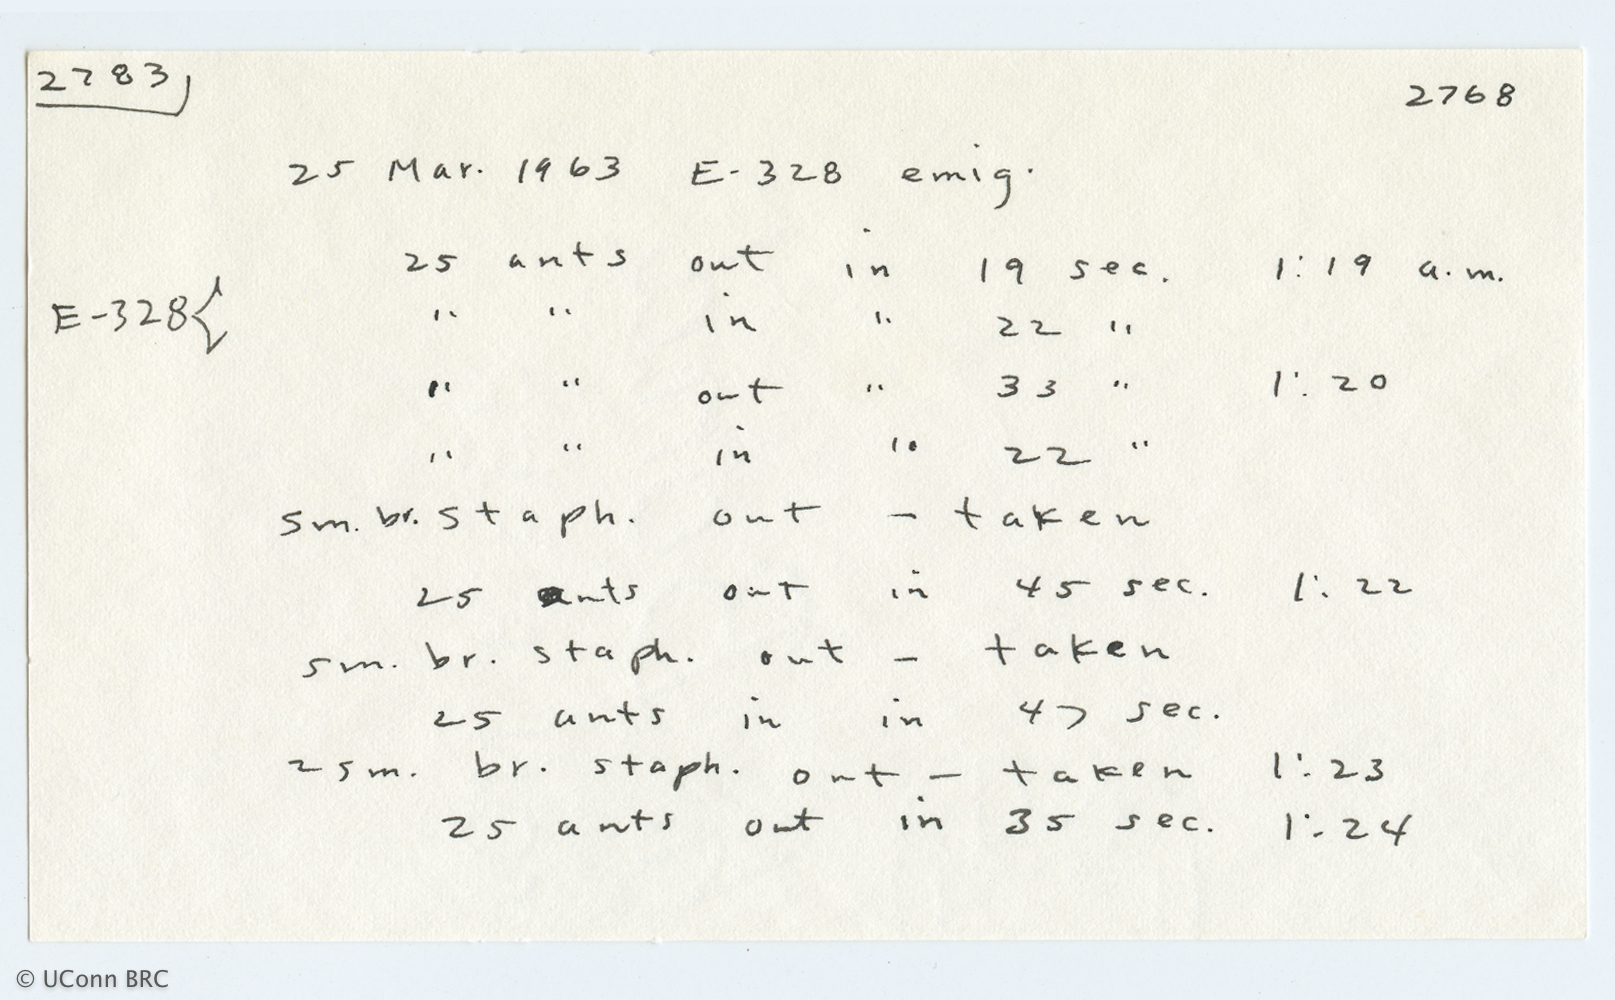 2783
2768
25 Mar. 1963 E-328 emig.
25 ants out in 19 sec. 1:19 a.m.
E-328{
" " in " 22 "
" " out " 33 " 1:20
" " in " 22 "
sm. br. staph. out - taken
25 ants out in 45 sec. 1:22
sm. br. staph. out - taken
25 ants in in 47 sec.
2 sm. br. staph. out - taken 1:23
25 ants out in 35 sec. 1:24
© UConn BRC